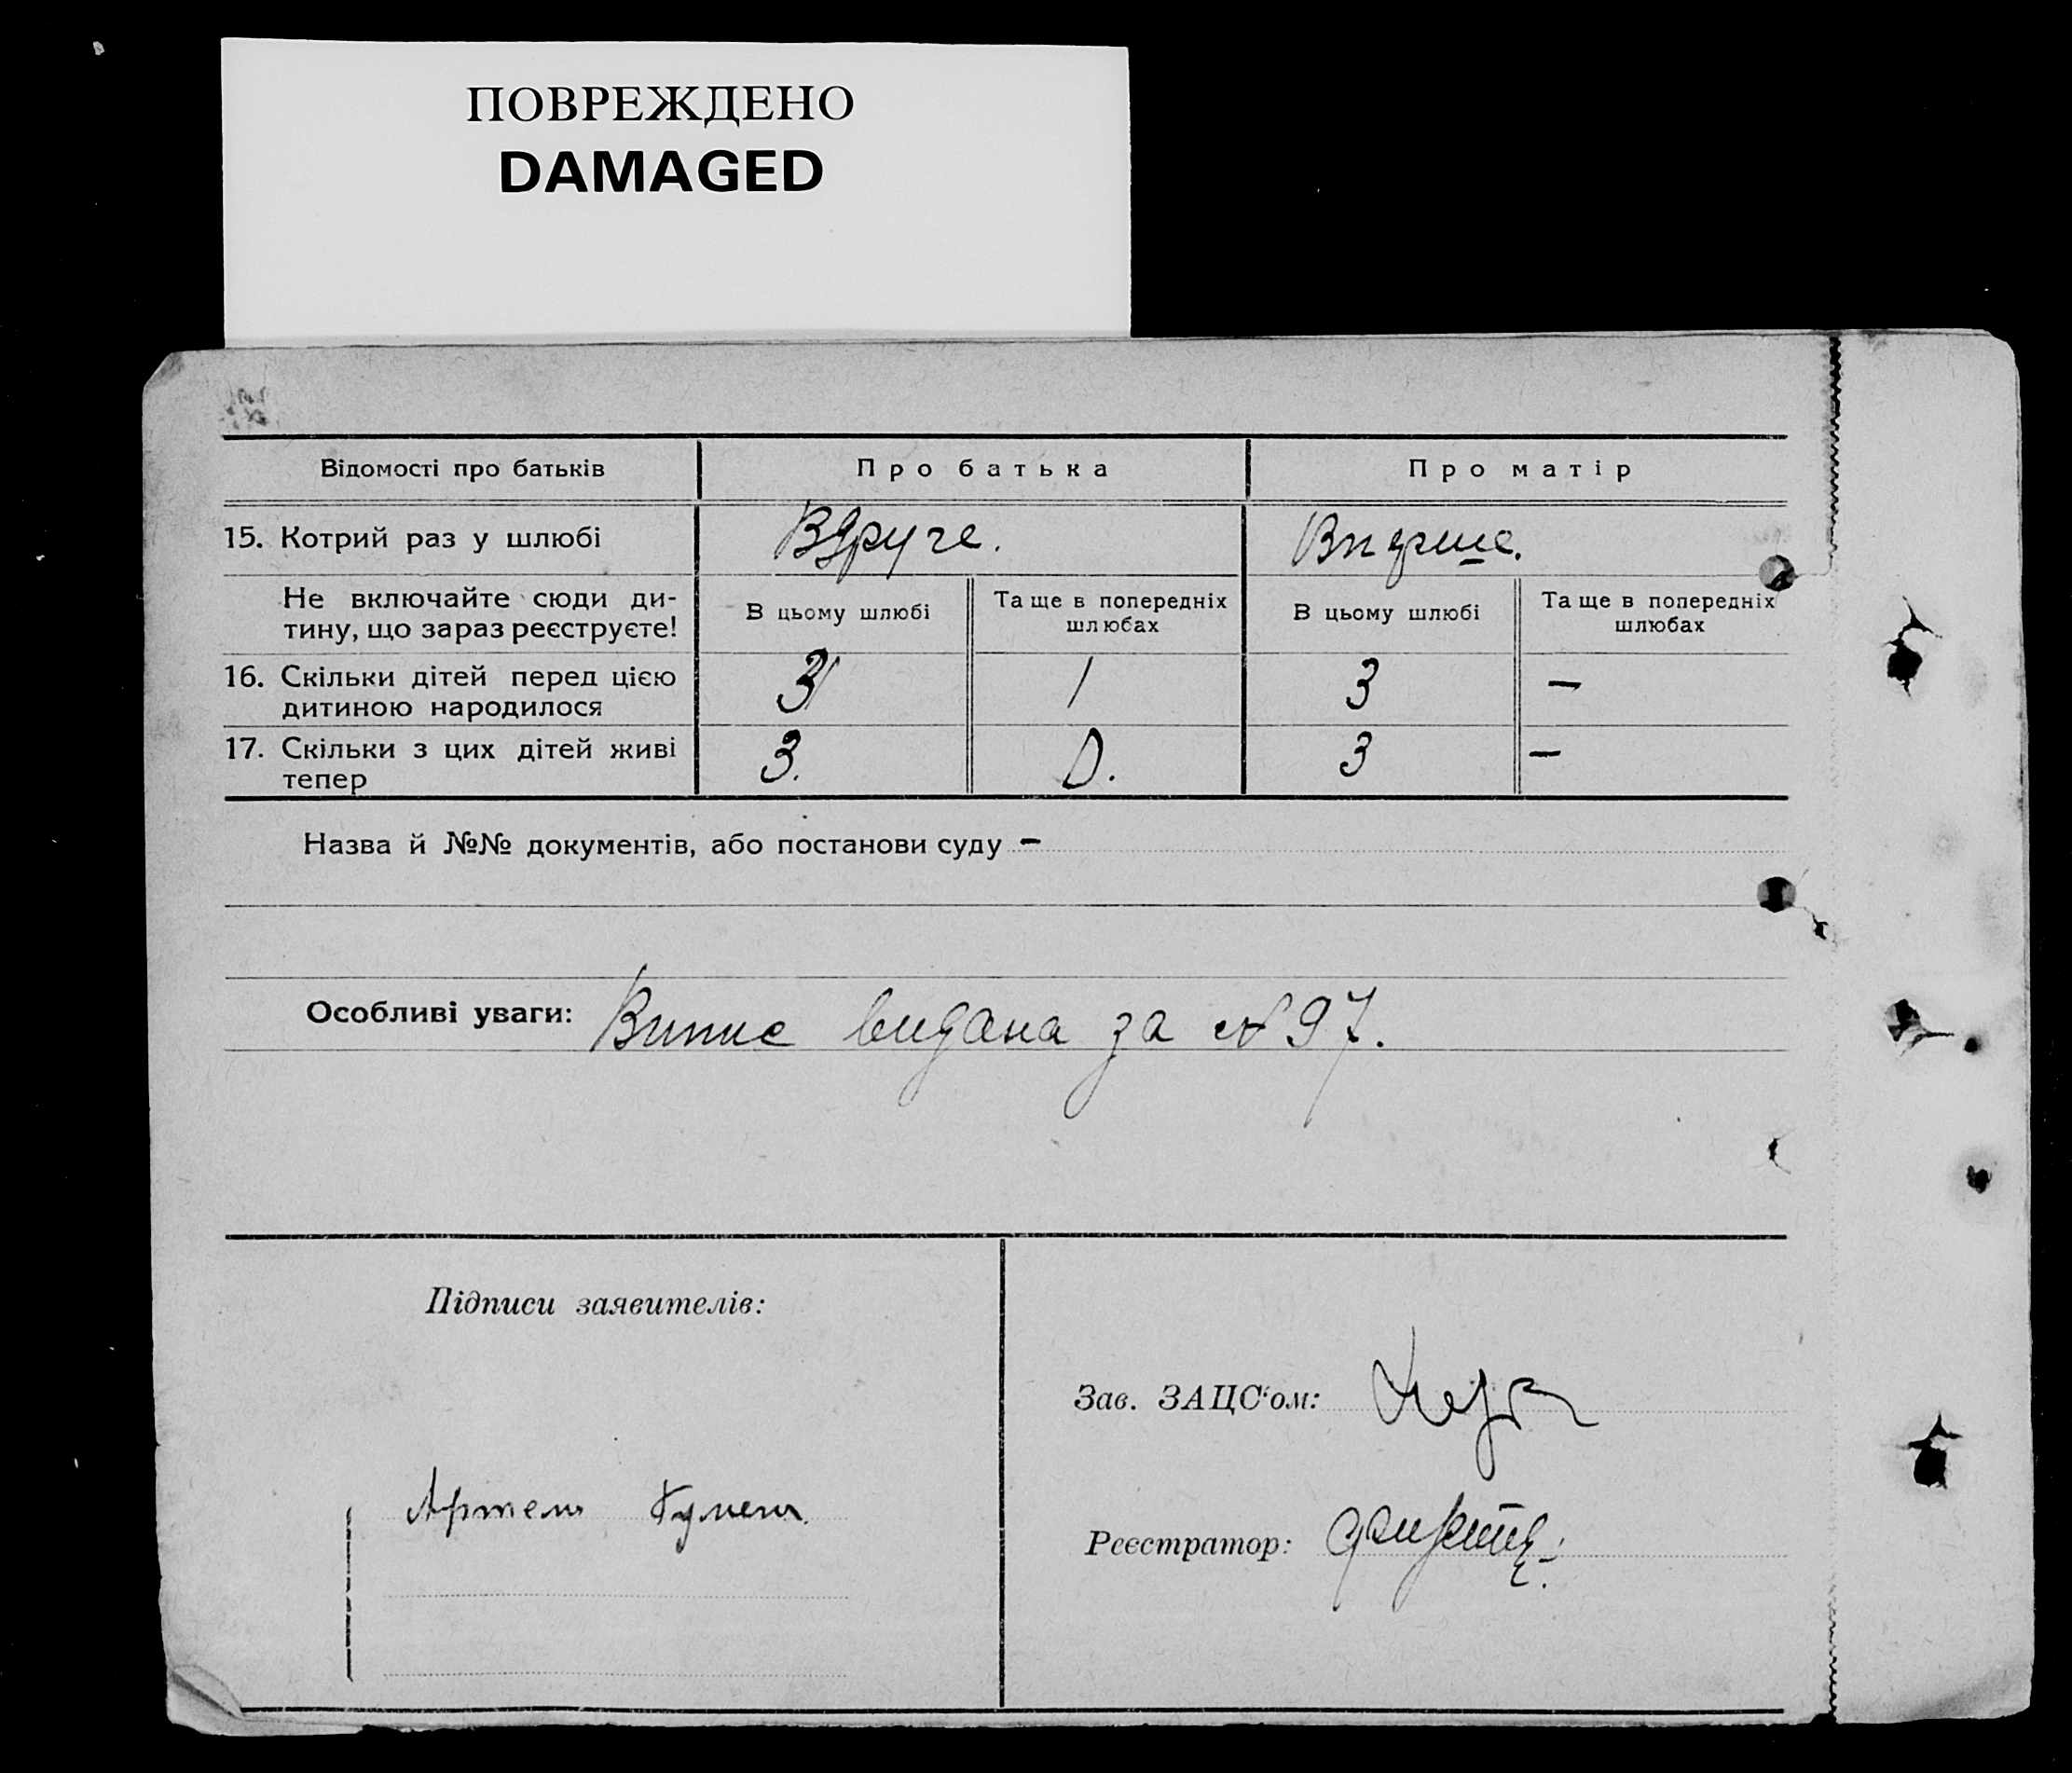 ПОВРЕЖДЕНО
DAMAGED
Відомості про батьків Про батька Про матір
15. Котрий раз у шлюбі Вдруге. Вперше.
Не включайте сюди ди-
тину, що зараз реєструєте!
В цьому шлюбі Та ще в попередніх
шлюбах
В цьому шлюбі Та ще в попередніх
шлюбах
16. Скільки дітей перед цією
дитиною народилося
3 1 3 –
17. Скільки з цих дітей живі
тепер
3. 0. 3 –
Назва й №№ документів, або постанови суду –
Особливі уваги: Випис видана за № 97.
Підписи заявителів:
Зав. ЗАЦС‘ом:
Реєстратор: